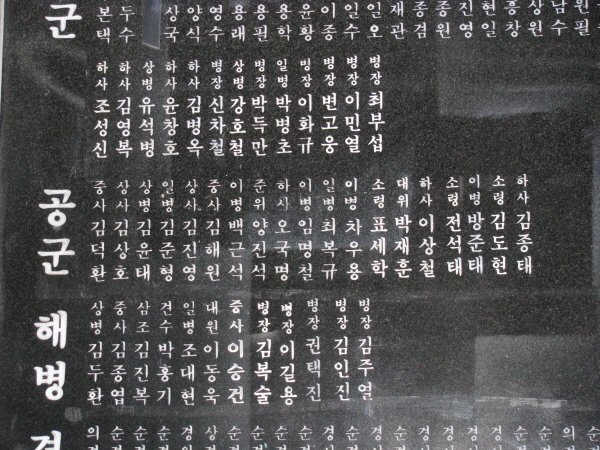 군
본택
두수
상국
양식
영수
용래
용필
용학
윤황
이종
일수
일오
재관
종겸
종원
진영
현일
흥창
상원
남수
하사 조성신
하사 김영복
상병 유석병
하사 윤창호
하사 김병옥
병장 신차철
상병 강호철
병장 박득만
일병 박병초
병장 이화규
병장 변고웅
병장 이민열
병장 최부섭
공군
중사 김덕환
상사 김상호
상병 김윤태
일병 김준형
상사 김진영
중사 김해원
이병 백근석
준위 양진석
하사 오국명
이병 임명철
일병 최복규
이병 차우용
소령 표세학
대위 박재훈
하사 이상철
소령 전석태
이병 방준태
소령 김도현
하사 김종태
해병
상병 김두환
중사 김종엽
삼조 김진복
견수 박홍기
일병 조대현
대원 이동욱
중사 이승건
병장 김복술
병장 이길용
병장 권택진
병장 김인진
병장 김주열
경